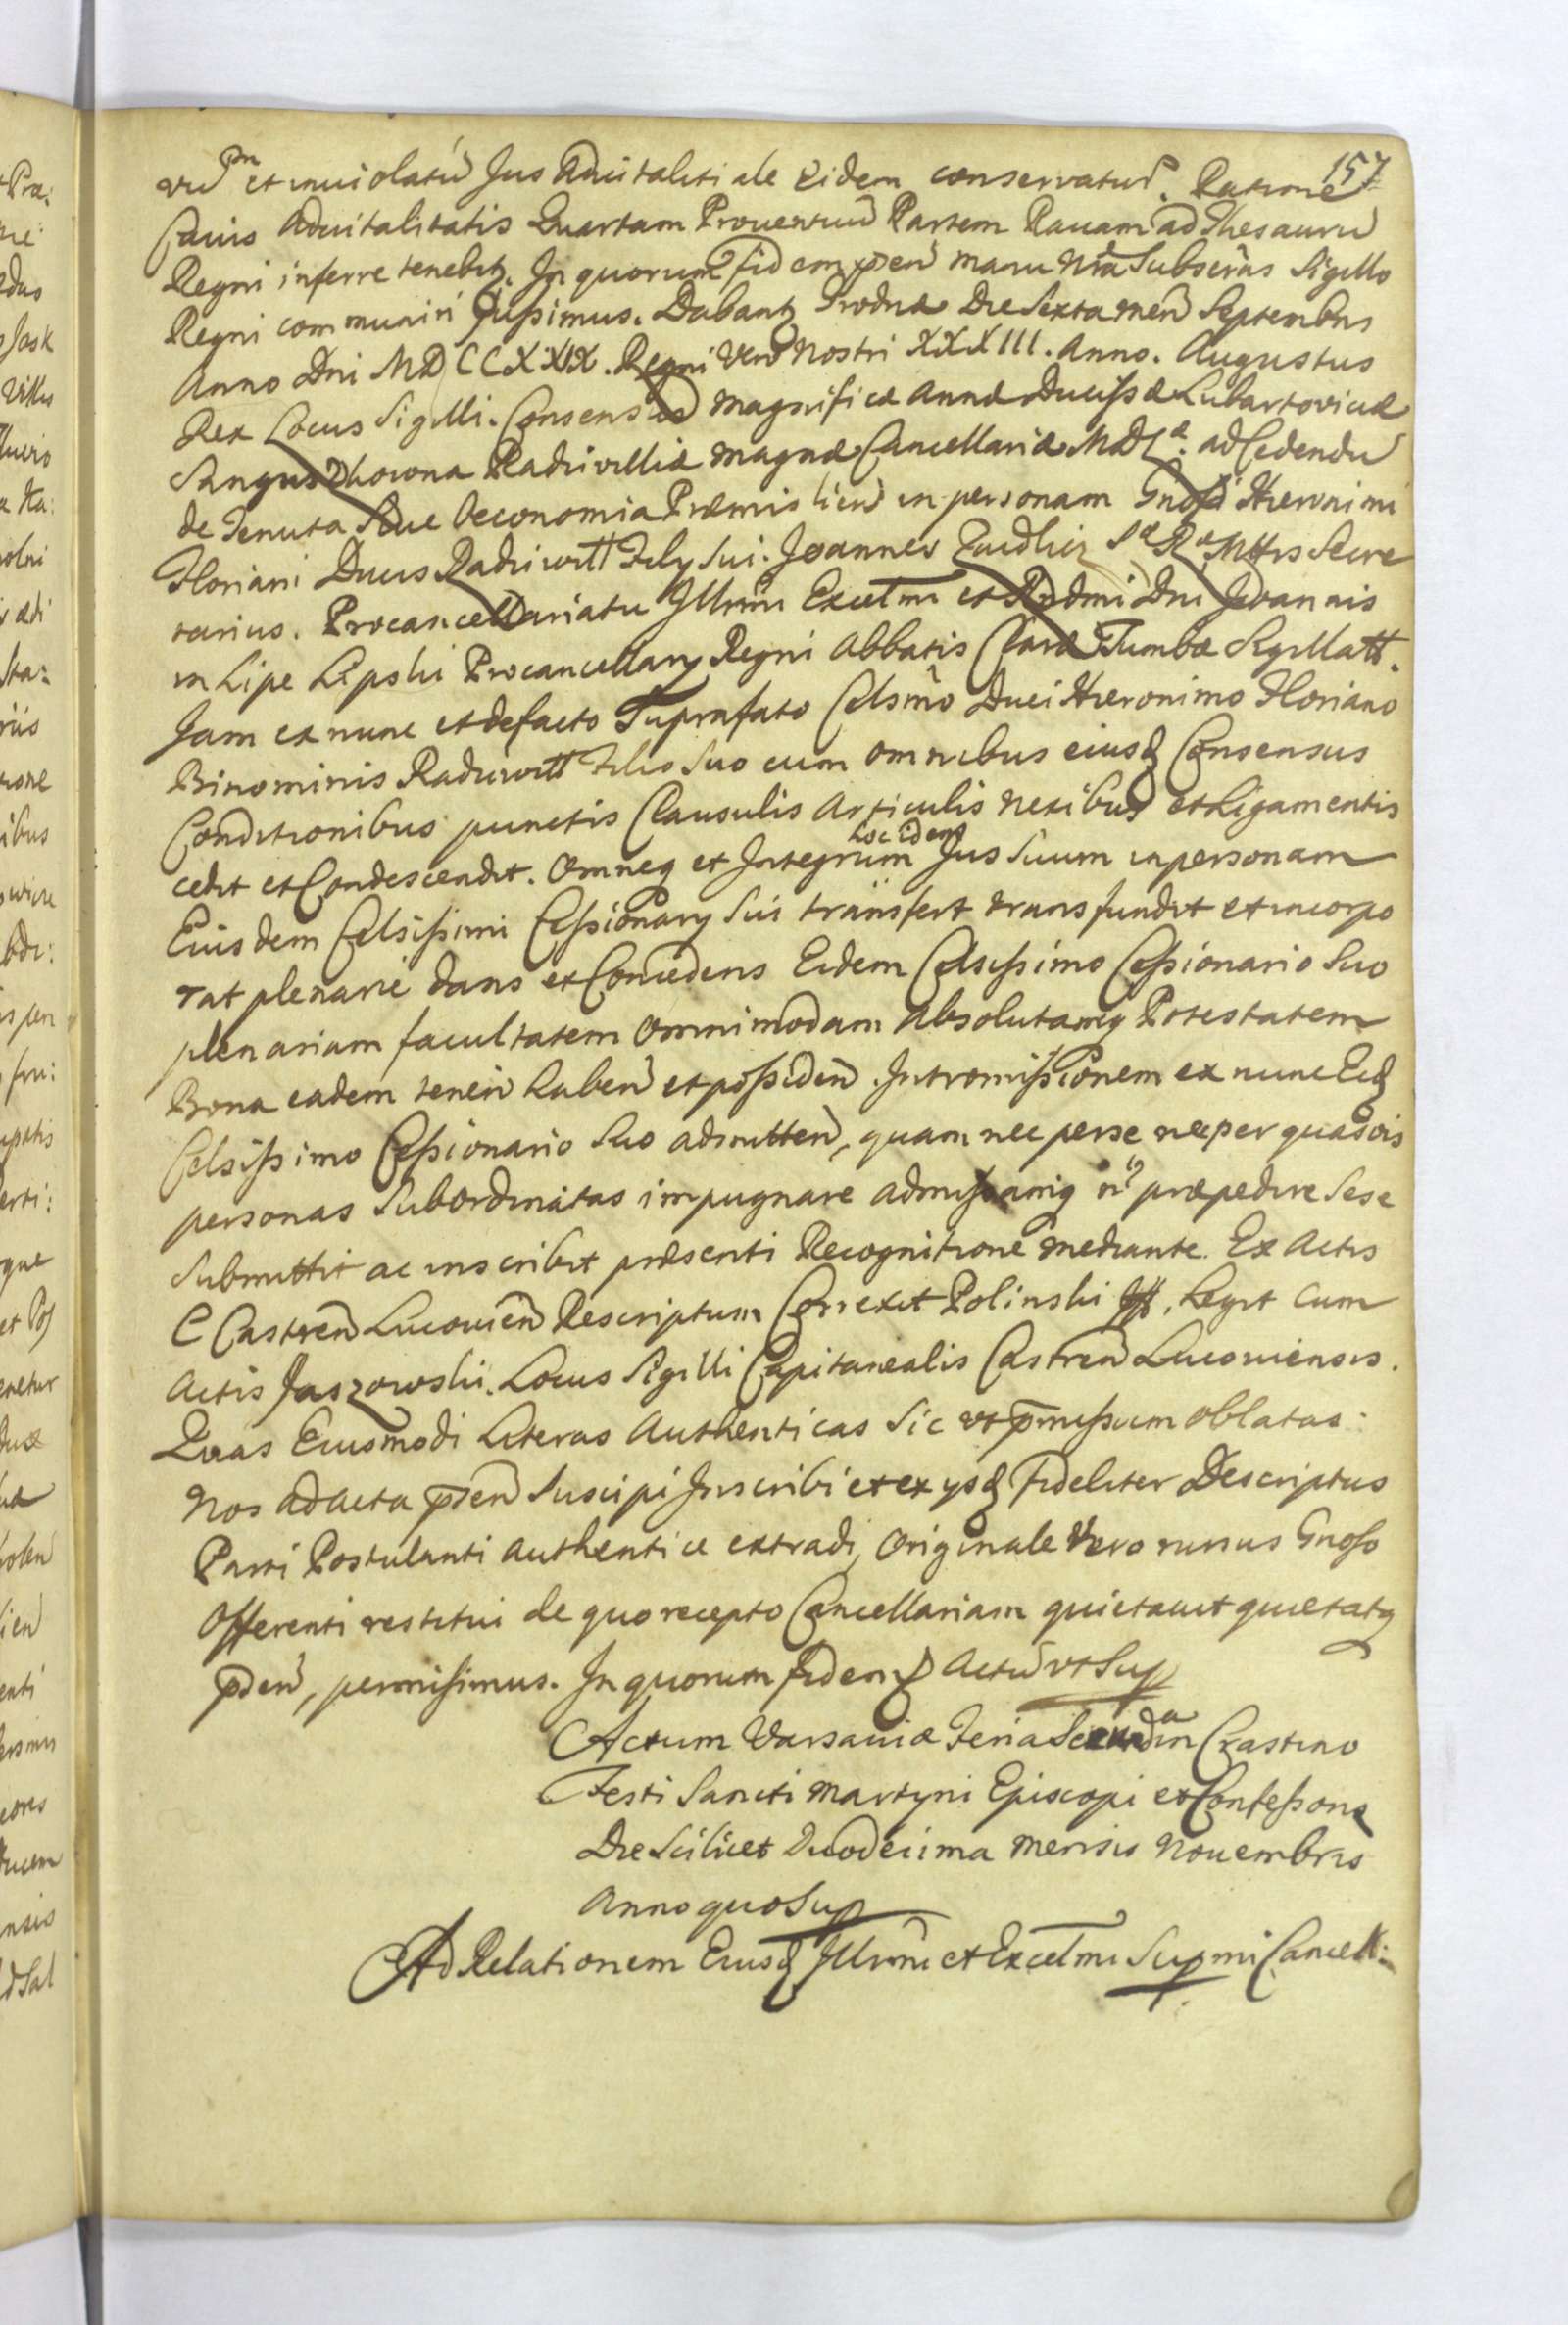 157
et inuiolatū Jus Aduitalitiale Eidem conservaturi. Ratione
Cuius Aduitalitatis Quartam Prouentuū Partem Rauam ad Thesaurū
Regni inferre tenebitz. In quorum fidem pñen manu Nrã Subscrãs Sigillo
Regni communiri Jussimus. Dabantz Grodnæ Die Sexta Menˉ Septembris
Anno Dni MDCCXXIX. Regni Vero Nostri XXXIII. Anno. Augustus
Rex Locus Sigilli. Consensus Magnificæ Annæ Ducissæ Lubartoviciæ
Sanguszkowna Radziwilliæ Magnæ Cancellariæ MDLæ. ad Cedendū
de Tenuta Siue Oeconomia Præmislien in personam Gnosi Hieronimi
Floriani Ducis Radziwill Filij Sui. Joannes SæRæMttis Secre
tarius. Procancellariatu Illmi Excelmi et Rndmi Dni Joannis
in Lipe Lipski Procancellarij Regni Abbatis Claræ Tumbæ Sigillatt.
Jam ex nunc et de facto Suprafato Celsmo Duci Hieronimo Floriano
Binominis Radziwill Filio Suo cum omnibus eiusq Consensus
Conditionibus punctis Clausulis Articulis Nexibus et Ligamentis
cedit et Condescendit. Omneq et Integrum hoc idem Jus Suum in personam
Eiusdem Celsissimi Cessionarij Sui transfert transfundit et incorpo
rat plenarie dans et Concedens Eidem Celsissimo Cessionario Suo
plenariam facultatem Omnimodam Absolutamq Potestatem
Bona eadem tenen haben et possiden. Intromissionem ex nunc Eidq
Celsissimo Cessionario Suo admitten, quam nec per se nec per quasvis
personas Subordinatas impugnare admissamq præpedire Sese
Submittit ac inscribit præsenti Recognitione mediante. Ex Actis
C Castren Lucovien Rescriptum Correxit Polinski Legit Cum
Actis Jaszowski. Locus Sigilli Capitanealis Castren Lucoviensis.
Quas Eiusmodi Literas Authenticas Sic vt p̄missum oblatas:
Nos ad acta p̄sen Suscipi Inscribi et ex ysq fideliter Descriptus
Parti Postulanti Authentice extradi, Originale Vero rursus Gnoso
Offerenti restitui de quo recepto Cancellariam quietauit quietatq
p̄sen, permisimus. In quorum fidem Actū vt Sup
Actum Varsauiæ Feria Secunda in Crastino
Festi Sancti Martyni Episcopi et Confessoris
Die Scilicet Duodecima Mensis Nouembris
Anno quo Sup
Ad Relationem Eiusq Illmi et Excelmi Supmi Cancell: